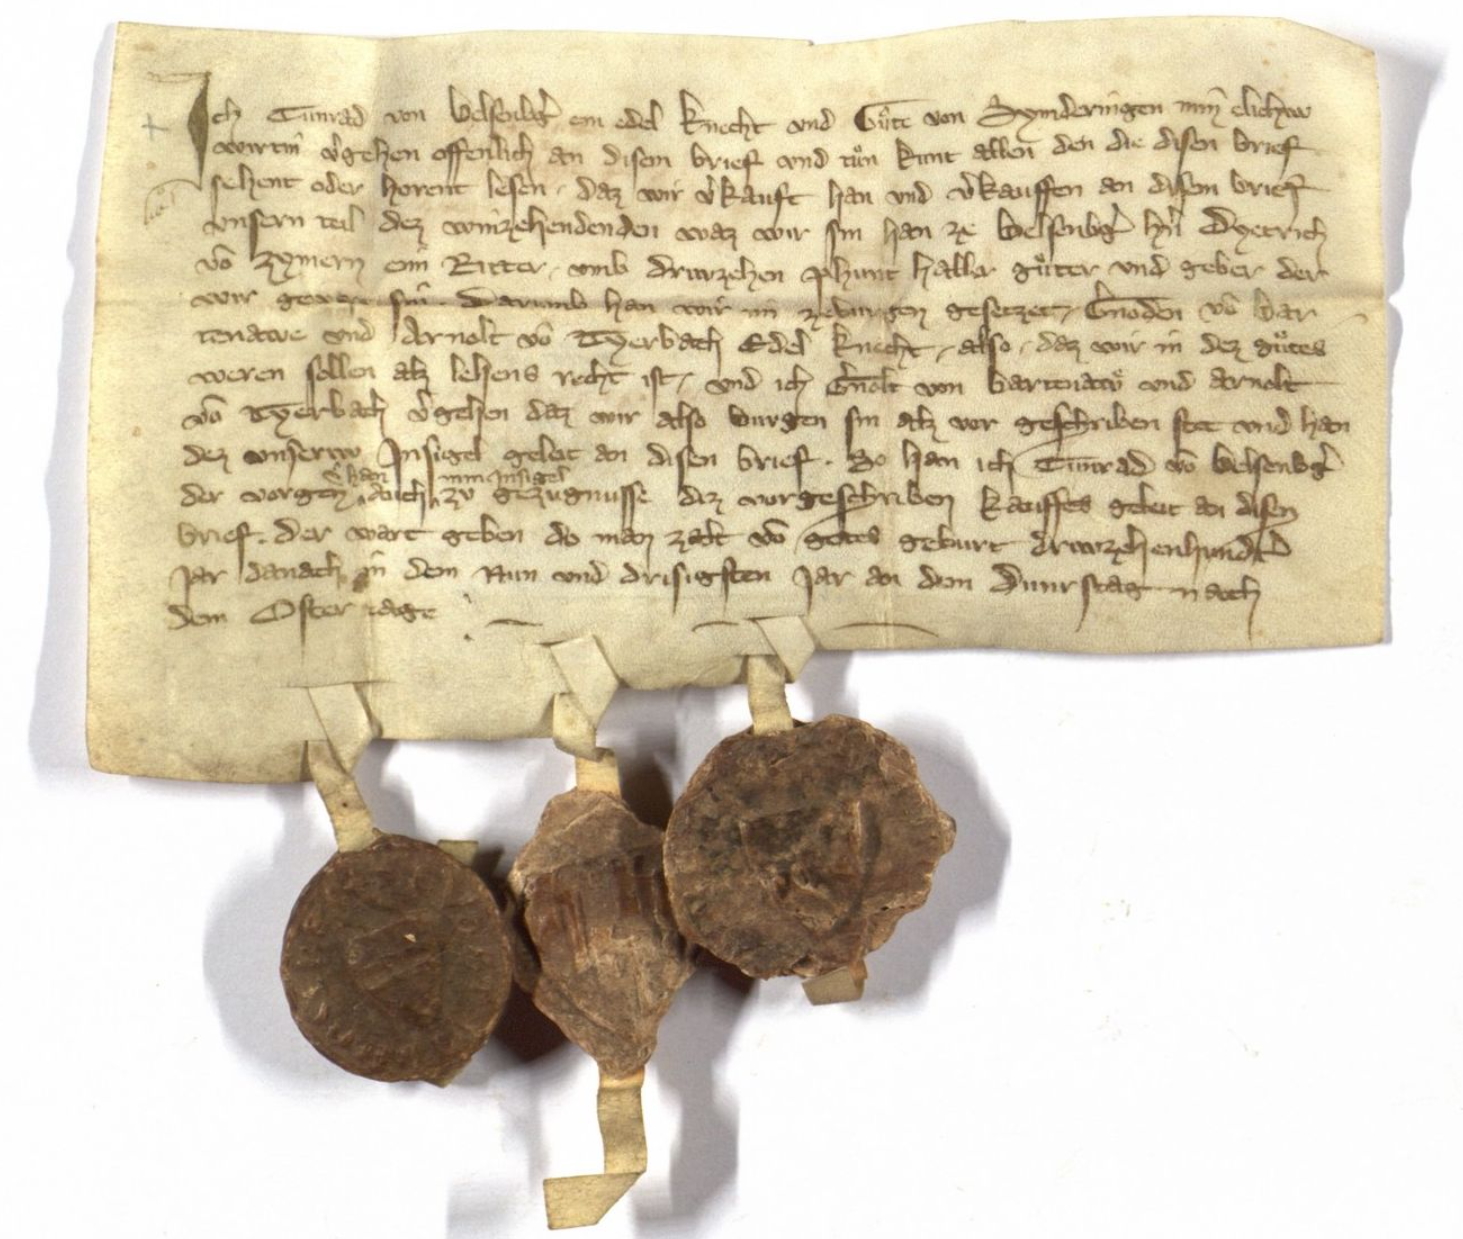 Ich Cunrad von Velsenbg̓ ein edel knecht vnd Gůte von Synderingen min̄ elichiv
wirtin̄ v̓gehen offenlich an disem brief vnd tůn kunt allen den die disen brief
sehent oder horent lesen, daz wir v̓kauft han vnd v̓kauffen an disem brief
vnsern teil dez winzehendenden waz wir sin han ze Velsenbg̓ hn̓ Dyetrich
vō zymern ein Ritter, vmb driuzehen phunt haller gůter vnd geber der
wir gewert sin. Darumb han wir im zeburgen gesetzet, Gnoden vō Bar
tenawe vnd Arnolt vō Tyerbach Edel knecht, also, daz wir in dez gůtes
weren sollen alz lehens recht ist, vnd ich Gnolt von Bartenaw vnd Arnolt
vō Tyerbach v̓gehen daz wir also burgen sin alz vor geschriben stet vnd han
dez vnseriv Insigel geleit an disen brief. So han ich Cunrad vō Velsenbg̓
der vorgen̄ han auch min Insigel zu gezugnusse diz vorgeschriben kauffes geleit an disen
brief. der wart geben do man zalt vō gotes geburt driuzehenhundert
Jar danach in dem Nun vnd drisigsten Jar an dem Dunrstag nach
dem Oster tage